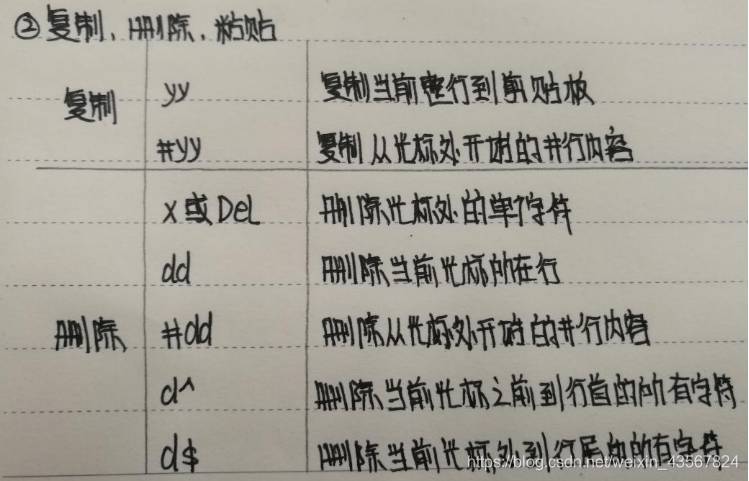 ②复制、删除、粘贴
复制 yy 复制当前整行到剪贴板
#yy 复制从光标处开始的#行内容
x或Del 删除光标处的单个字符
dd 删除当前光标所在行
删除 #dd 删除从光标处开始的#行内容
d^ 删除当前光标之前到行首的所有字符
d$ 删除当前光标处到行尾的所有字符
https://blog.csdn.net/weixin_43567824